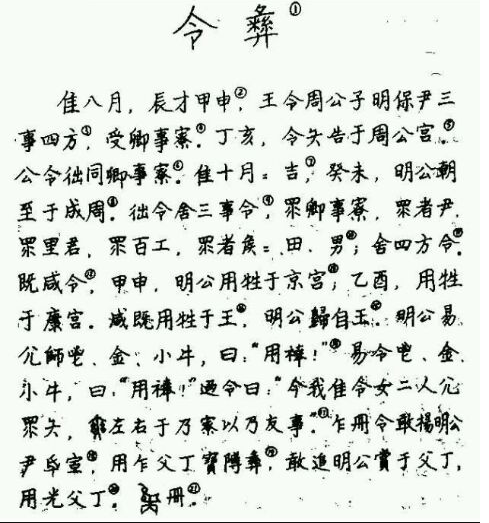 令彝①
隹八月，辰才甲申②，王令周公子明保尹三
事四方③，受卿事寮④。丁亥，令夨告于周公宫⑤。
公令𢓊同卿事寮⑥。隹十月=吉⑦，癸未，明公朝
至于成周⑧。𢓊令舍三事令⑨，眔卿事寮，眔者尹，
眔里君，眔百工，眔者侯=田、男⑩；舍四方令⑪。
既咸令⑫，甲申，明公用牲于京宫⑬；乙酉，用牲
于康宫。咸既用牲于王⑭，明公歸自王⑮。明公易
亢師鬯、金、小牛，曰："用𥛱！"⑯易令鬯、金、
小牛，曰："用𥛱！"廼令曰："今我隹令女二人亢
眔夨，爽左右于乃寮以乃友事。"⑰乍册令敢揚明公
尹氒室⑱，用乍父丁寶𨻰彝⑲，敢追明公賞于父丁，
用光父丁⑳。册㉑。